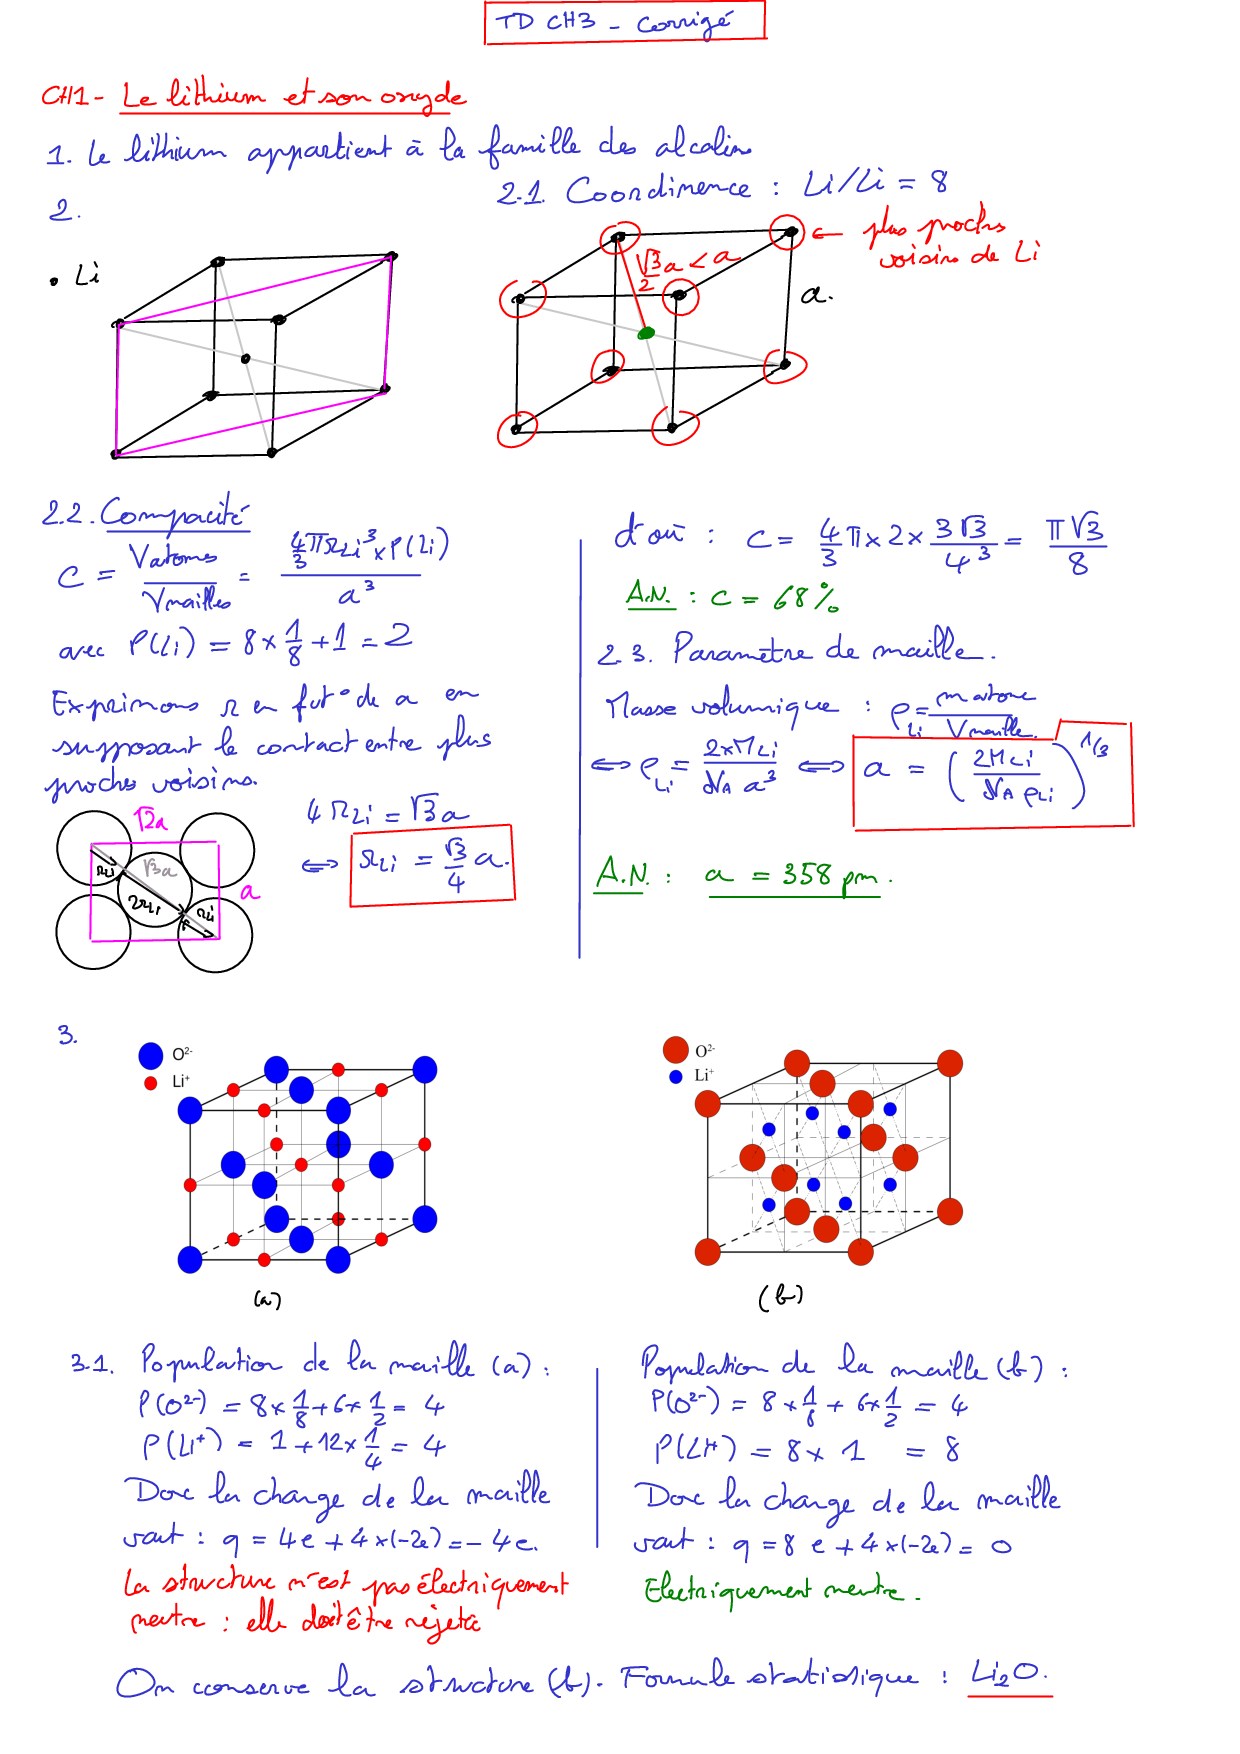 TD CH3 - Corrigé
CH1 - Le lithium et son oxyde
1. Le lithium appartient à la famille des alcalins
2.
2.1. Coordinence : Li/Li = 8
• Li
← plus proches
voisins de Li
√3/2 a < a
a.
2.2. Compacité
C = Vatomes/Vmailles = (4/3 π r_Li³ × P(Li))/a³
avec P(Li) = 8 × 1/8 + 1 = 2
Exprimons r en fct° de a en
supposant le contact entre plus
proches voisins.
√2a
√3a
a
r_Li
2r_Li
r_Li
4 r_Li = √3 a
⇔ r_Li = √3/4 a.
d'où : C = 4/3 π × 2 × 3√3/4³ = π√3/8
A.N. : C = 68%
2.3. Paramètre de maille.
Masse volumique : ρ_Li = m atome/V maille
⇔ ρ_Li = 2×M_Li/(N_A a³) ⇔ a = (2M_Li/(N_A ρ_Li))^1/3
A.N. : a = 358 pm.
3.
O²⁻
Li⁺
(a)
O²⁻
Li⁺
(b)
3.1. Population de la maille (a) :
P(O²⁻) = 8 × 1/8 + 6 × 1/2 = 4
P(Li⁺) = 1 + 12 × 1/4 = 4
Donc la charge de la maille
vaut : q = 4e + 4×(-2e) = -4e.
La structure n'est pas électriquement
neutre : elle doit être rejetée
Population de la maille (b) :
P(O²⁻) = 8 × 1/8 + 6 × 1/2 = 4
P(Li⁺) = 8 × 1 = 8
Donc la charge de la maille
vaut : q = 8 e + 4×(-2e) = 0
Electriquement neutre.
On conserve la structure (b). Formule statistique : Li₂O.